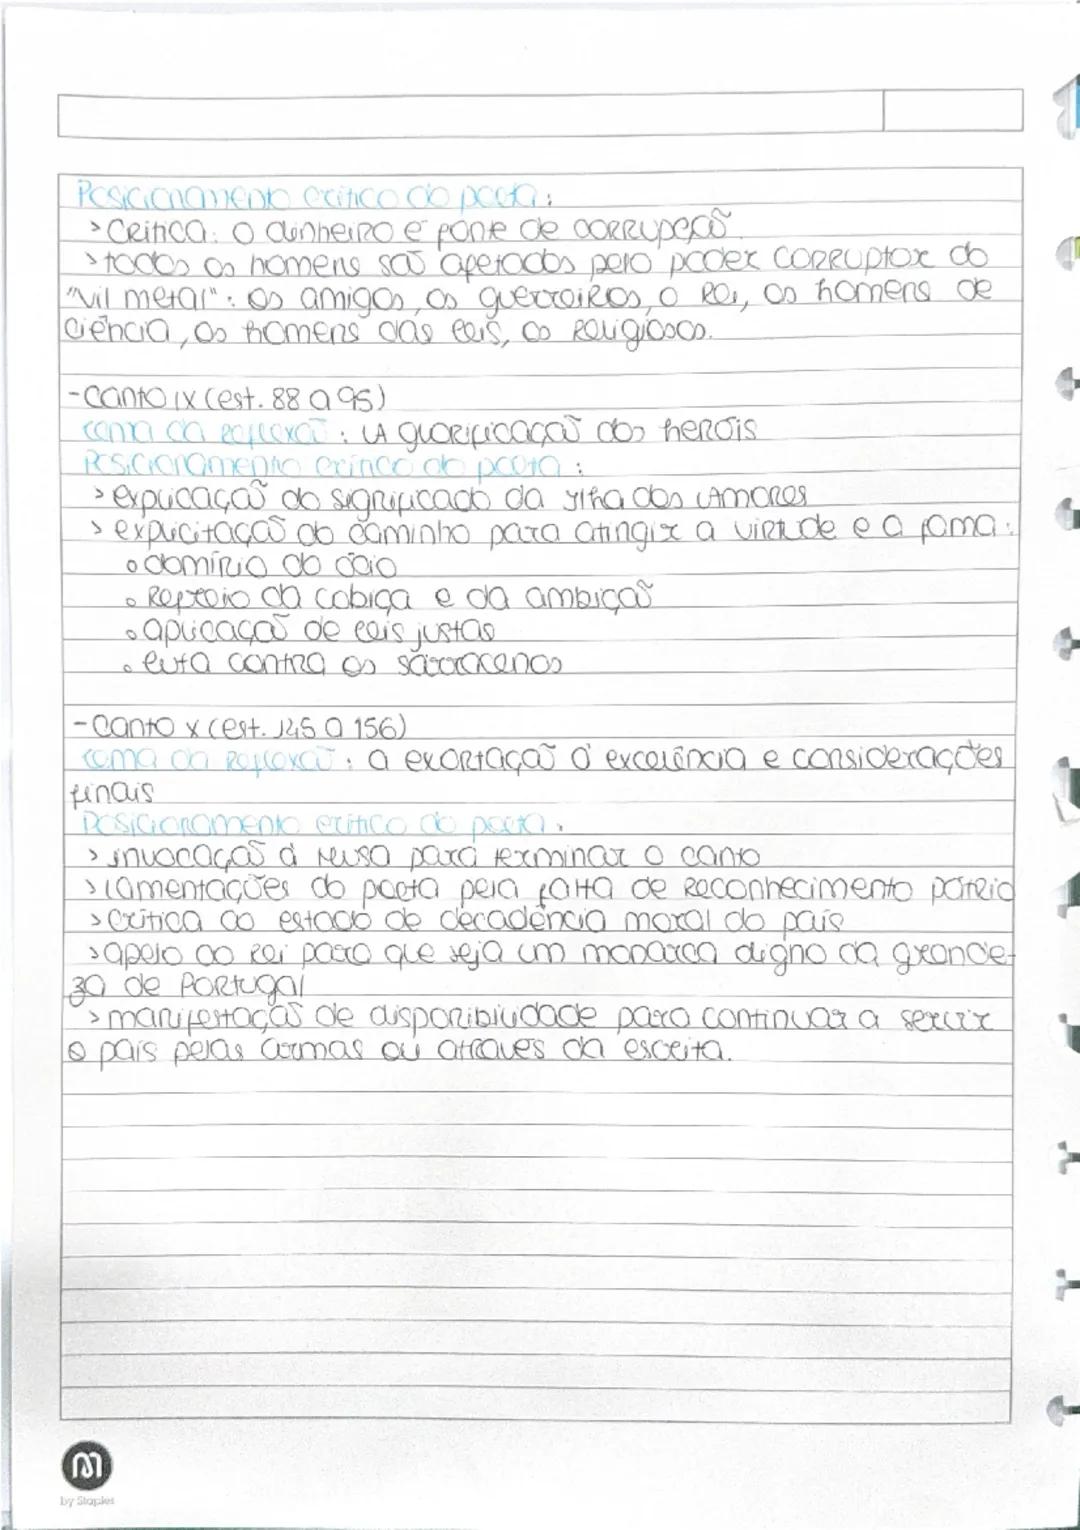 Posicionamento crítico do poeta:
> Crítica: o dinheiro é fonte de corrupção.
> todos os homens são afetados pelo poder corruptor do
"vil metal": os amigos, os guerreiros, o Rei, os homens de
ciência, os homens das leis, os religiosos.
- Canto IX (est. 88 a 95)
Tema da reflexão: A glorificação dos heróis
Posicionamento crítico do poeta:
> explicação do significado da Ilha dos Amores
> explicitação do caminho para atingir a virtude e a fama:
o domínio do ócio
o refreio da cobiça e da ambição
o aplicação de leis justas
o luta contra os sarracenos
- Canto X (est. 145 a 156)
Tema da reflexão: a exortação à excelência e considerações
finais
Posicionamento crítico do poeta:
> invocação à Musa para terminar o canto
> lamentações do poeta pela falta de reconhecimento pátrio
> crítica ao estado de decadência moral do país
> apelo ao Rei para que seja um monarca digno da grande-
za de Portugal
> manifestação de disponibilidade para continuar a servir
o país pelas armas ou através da escrita.
by Staples